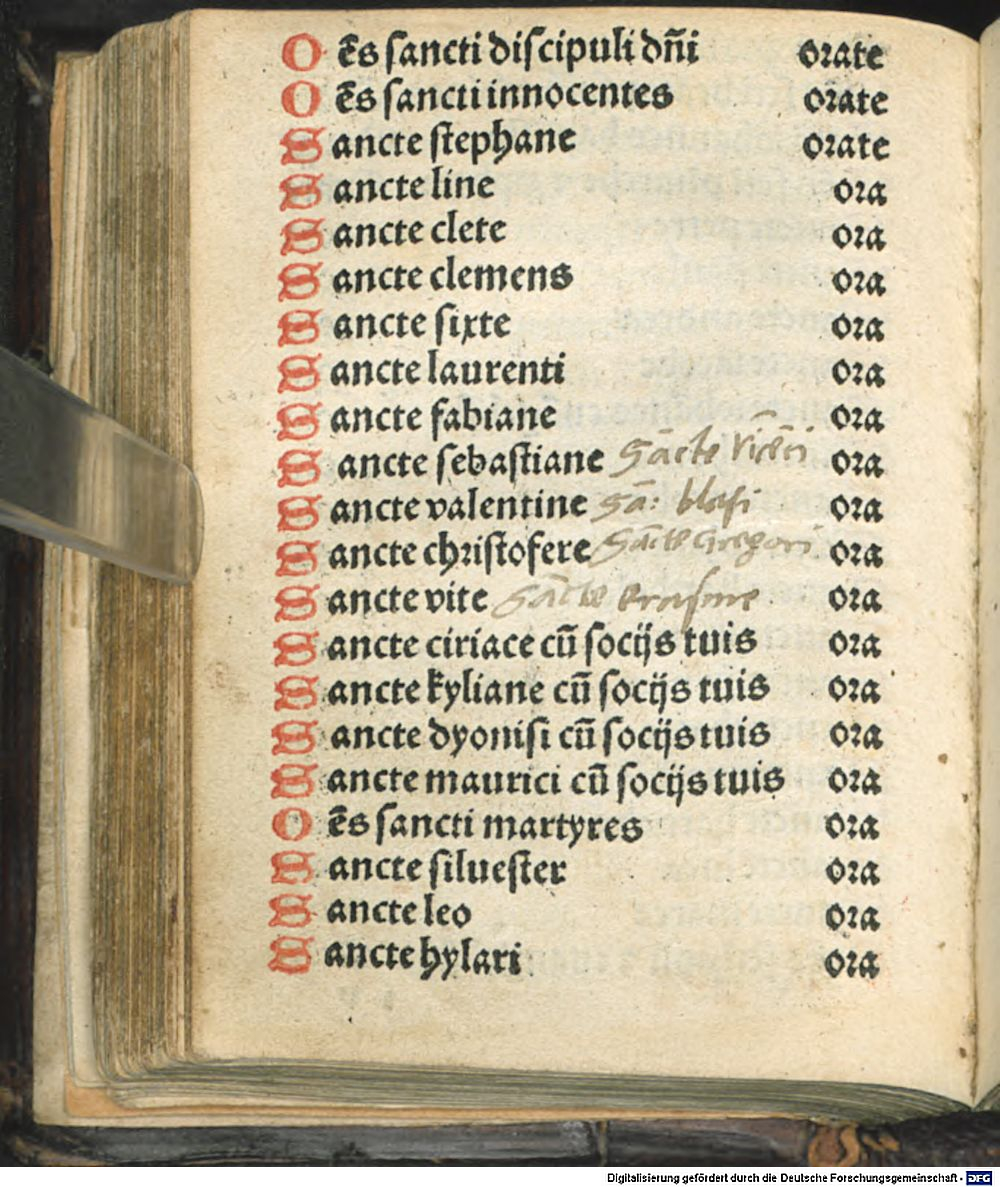 Oēs sancti discipuli dñi orate
Oēs sancti innocentes orate
Sancte stephane orate
Sancte line ora
Sancte clete ora
Sancte clemens ora
Sancte sixte ora
Sancte laurenti ora
Sancte fabiane ora
Sancte sebastiane Sācte Vicēti ora
Sancte valentine Sā: blasi ora
Sancte christofere Sācte Gregori ora
Sancte vite Sācte Erasme ora
Sancte ciriace cū socijs tuis ora
Sancte kyliane cū socijs tuis ora
Sancte dyonisi cū socijs tuis ora
Sancte maurici cū socijs tuis ora
Oēs sancti martyres ora
Sancte siluester ora
Sancte leo ora
Sancte hylari ora
Digitalisierung gefördert durch die Deutsche Forschungsgemeinschaft - DFG